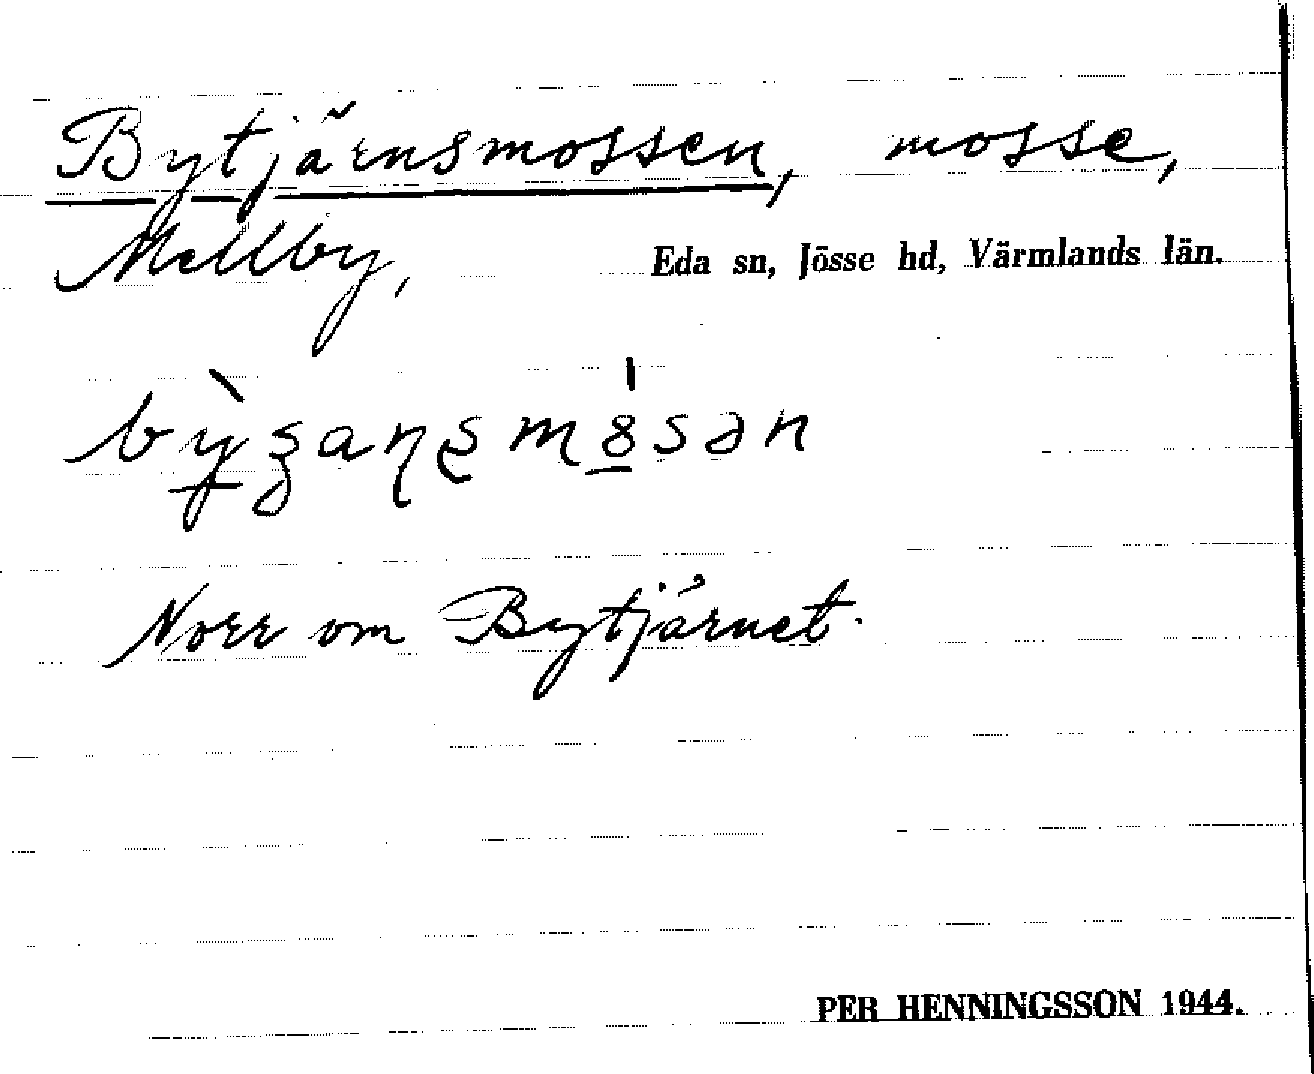 Bytjärnsmossen, mosse,
Mellby, Eda sn, Jösse hd, Värmlands län.
Norr om Bytjärnet.
PER HENNINGSSON 1944.